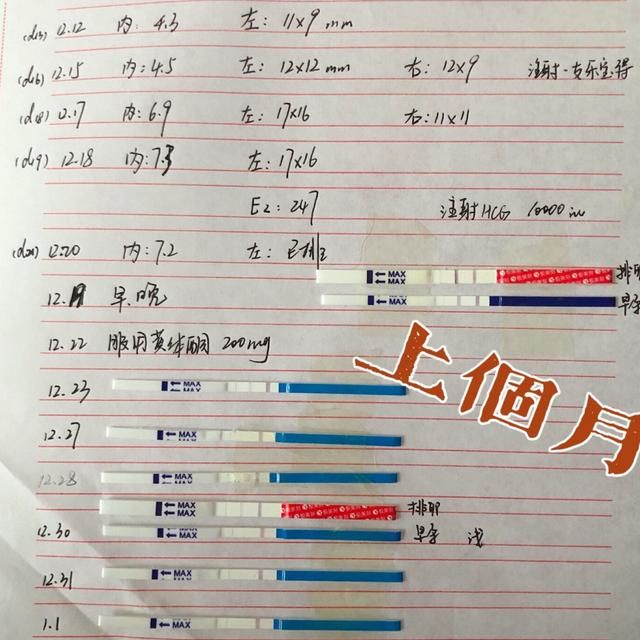 (d13) 12.12 内: 4.3 左: 11×9 mm
(d16) 12.15 内: 4.5 左: 12×12 mm 右: 12×9 注射一支乐宝得
(d18) 12.17 内: 6.9 左: 17×16 右: 11×11
(d19) 12.18 内: 7.3 左: 17×16
E2: 247 注射HCG 10000 iu
12.20 内: 7.2 左: 已排
← MAX
← MAX
排卵
早晚
← MAX
← MAX
早孕
12.22 服用黄体酮 200mg
上個月
12.23
← MAX
← MAX
12.27
← MAX
← MAX
12.28
← MAX
← MAX
← MAX
← MAX
排卵
12.30
← MAX
← MAX
早孕 浅
12.31
← MAX
← MAX
1.1
← MAX
← MAX